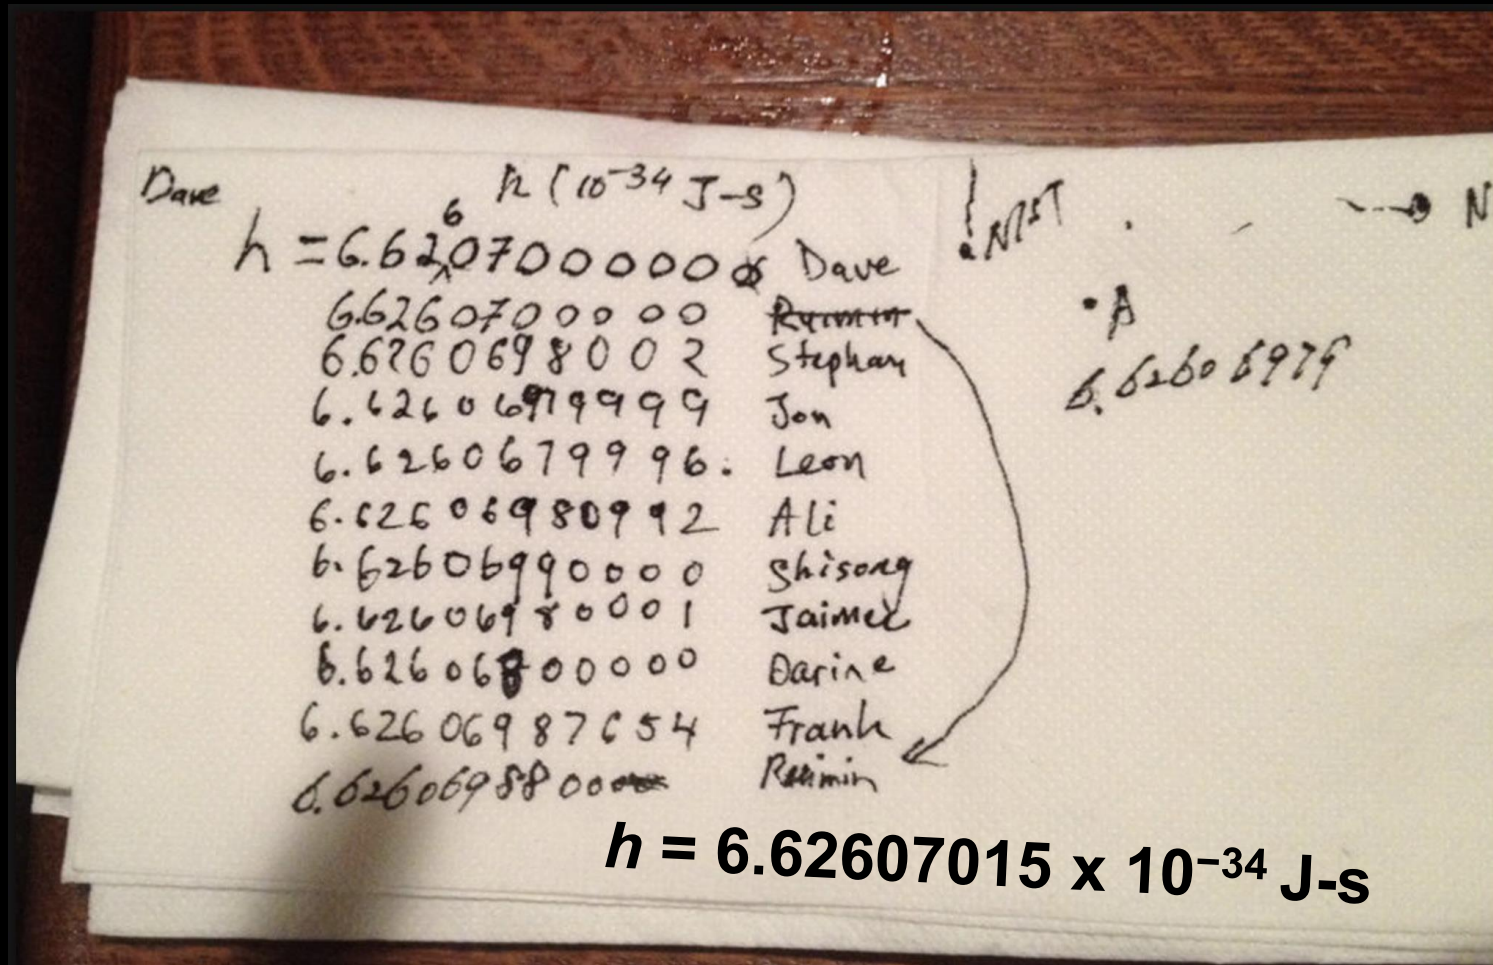 Dave
h (10⁻³⁴ J-s)
6
h = 6.62‸0700000000 Dave
6.6260700000 Ruimin
6.6260698002 Stephan
6.62606979999 Jon
6.62606799996. Leon
6.62606980992 Ali
6.62606990000 Shisong
6.62606980001 Jaimee
6.62606800000 Darine
6.62606987654 Frank
6.6260698800 Ruimin
NIST
N
A
6.62606979
h = 6.62607015 x 10⁻³⁴ J-s